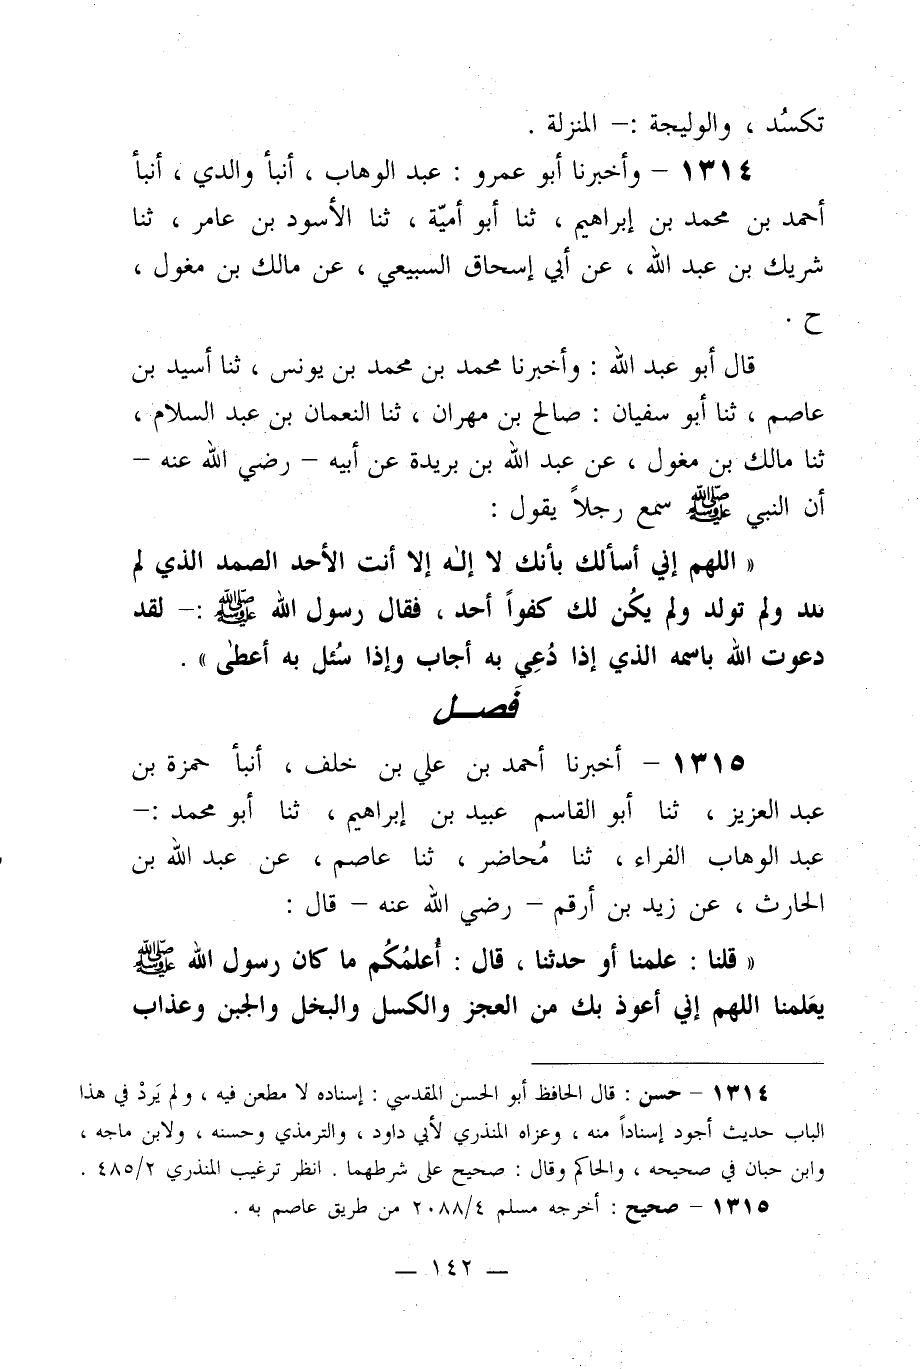 تكسُد ، والوليجة :– المنزلة .
١٣١٤ – وأخبرنا أبو عمرو : عبد الوهاب ، أنبأ والدي ، أنبأ
أحمد بن محمد بن إبراهيم ، ثنا أبو أميّة ، ثنا الأسود بن عامر ، ثنا
شريك بن عبد الله ، عن أبي إسحاق السبيعي ، عن مالك بن مغول ،
ح .
قال أبو عبد الله : وأخبرنا محمد بن محمد بن يونس ، ثنا أسيد بن
عاصم ، ثنا أبو سفيان : صالح بن مهران ، ثنا النعمان بن عبد السلام ،
ثنا مالك بن مغول ، عن عبد الله بن بريدة عن أبيه – رضي الله عنه –
أن النبي ﷺ سمع رجلاً يقول :
« اللهم إني أسألك بأنك لا إلٰه إلا أنت الأحد الصمد الذي لم
تلد ولم تولد ولم يكُن لك كفواً أحد ، فقال رسول الله ﷺ :– لقد
دعوت الله باسمه الذي إذا دُعِي به أجاب وإذا سُئل به أعطىٰ » .
فَصــل
١٣١٥ – أخبرنا أحمد بن علي بن خلف ، أنبأ حمزة بن
عبد العزيز ، ثنا أبو القاسم عبيد بن إبراهيم ، ثنا أبو محمد :–
عبد الوهاب الفراء ، ثنا مُحاضر ، ثنا عاصم ، عن عبد الله بن
الحارث ، عن زيد بن أرقم – رضي الله عنه – قال :
« قلنا : علمنا أو حدثنا ، قال : أُعلمُكُم ما كان رسول الله ﷺ
يعَلمنا اللهم إني أعوذ بك من العجز والكسل والبخل والجبن وعذاب
١٣١٤ – حسن : قال الحافظ أبو الحسن المقدسي : إسناده لا مطعن فيه ، ولم يَردْ في هذا
الباب حديث أجود إسناداً منه ، وعزاه المنذري لأبي داود ، والترمذي وحسنه ، ولابن ماجه ،
وابن حبان في صحيحه ، والحاكم وقال : صحيح على شرطهما . انظر ترغيب المنذري ٤٨٥/٢ .
١٣١٥ – صحيح : أخرجه مسلم ٢٠٨٨/٤ من طريق عاصم به .
— ١٤٢ —